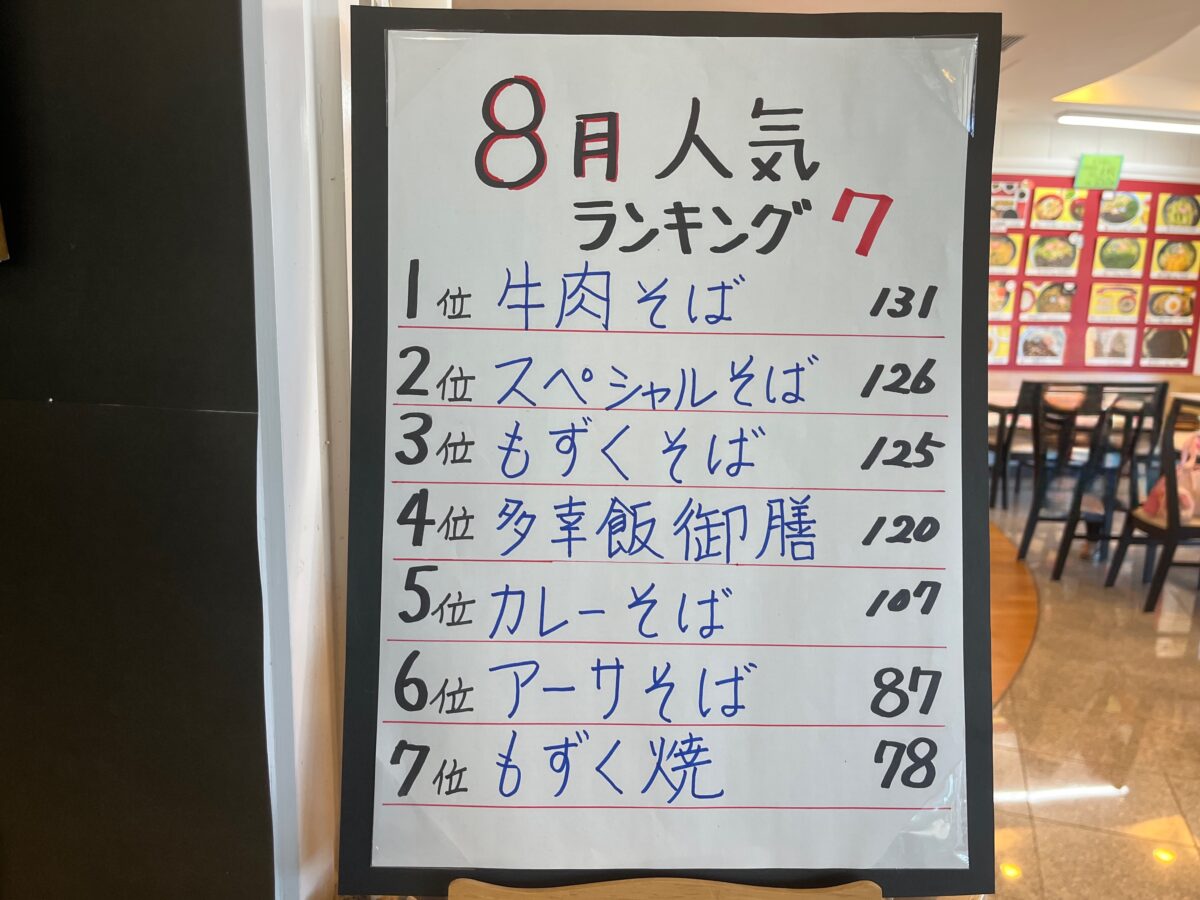 8月人気
ランキング7
1位 牛肉そば 131
2位 スペシャルそば 126
3位 もずくそば 125
4位 多幸飯御膳 120
5位 カレーそば 107
6位 アーサそば 87
7位 もずく焼 78